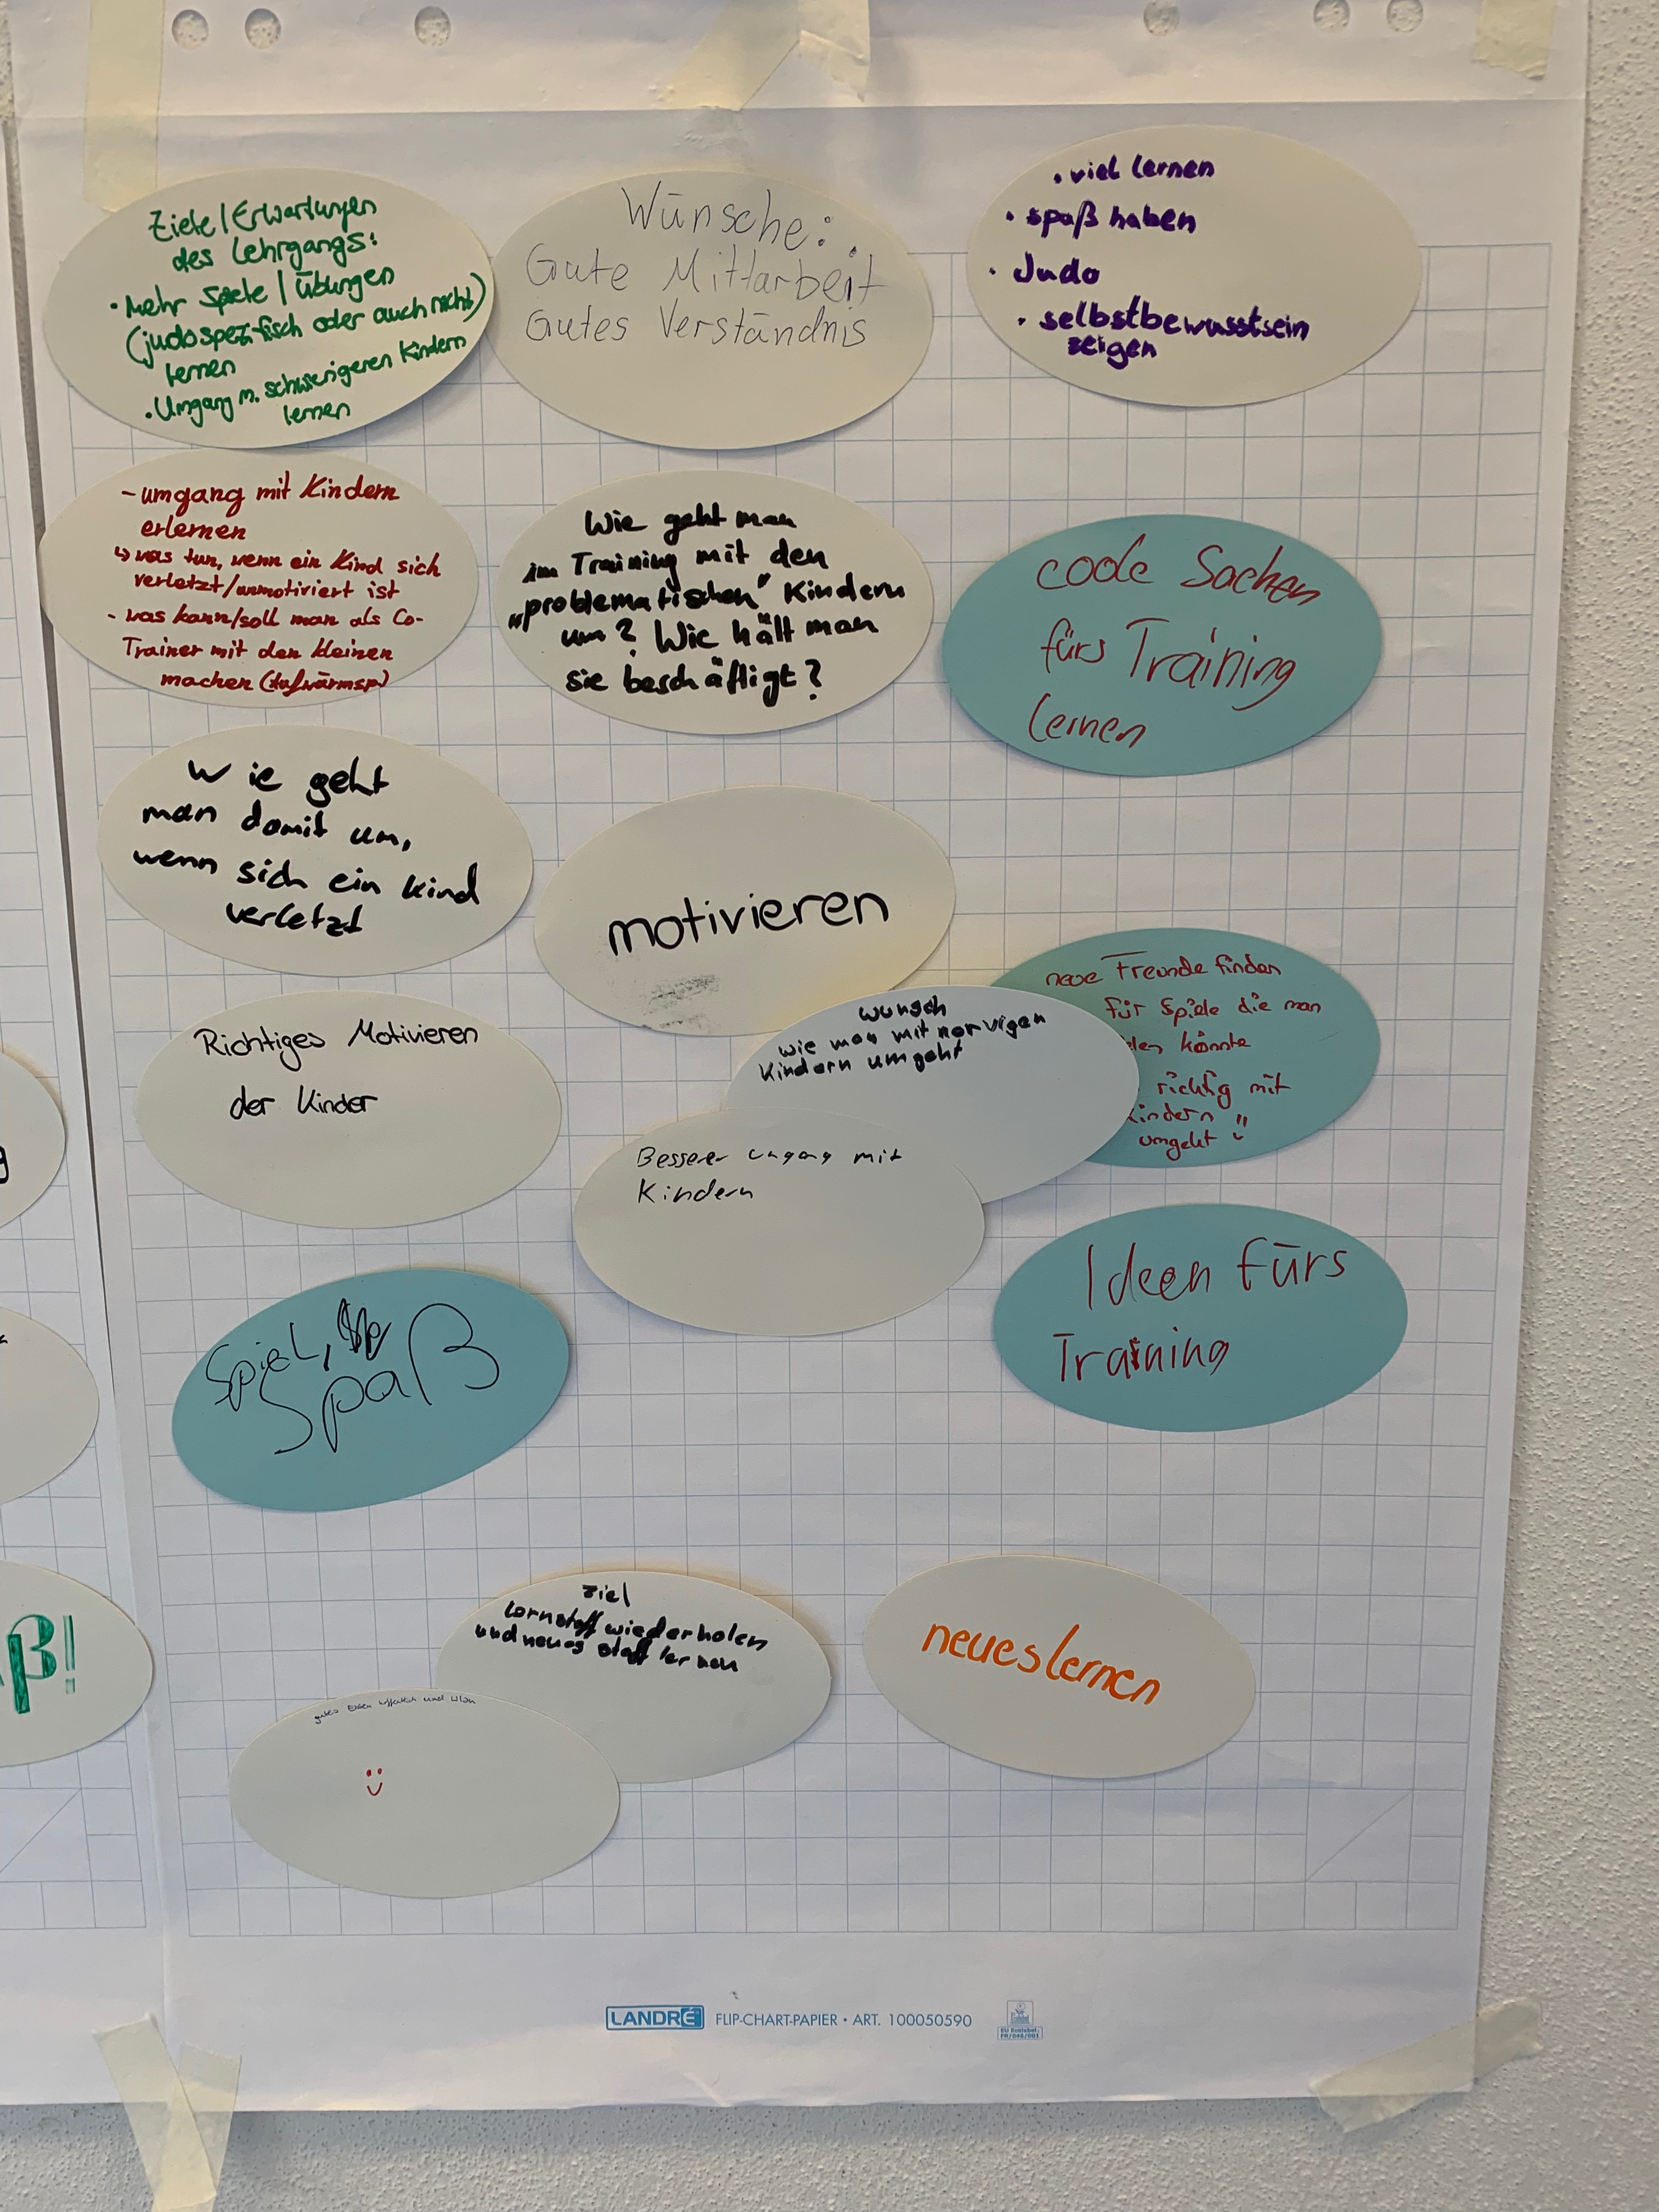 Ziele/Erwartungen
des Lehrgangs:
• Mehr Spiele/Übungen
(judospezifisch oder auch nicht)
lernen
• Umgang m. schwierigeren Kindern
lernen
Wünsche:
Gute Mittarbeit
Gutes Verständnis
• viel lernen
• spaß haben
• Judo
• selbstbewusstsein
zeigen
- umgang mit Kindern
erlernen
↳ was tun, wenn ein Kind sich
verletzt/unmotiviert ist
- was kann/soll man als Co-
Trainer mit den kleinen
machen (Aufwärmsp)
Wie geht man
im Training mit den
„problematischen" Kindern
um? Wie hält man
sie beschäftigt?
coole Sachen
fürs Training
lernen
Wie geht
man damit um,
wenn sich ein Kind
verletzt
motivieren
Richtiges Motivieren
der Kinder
wunsch
wie man mit nervigen
Kindern umgeht
neue Freunde finden
für Spiele die man
könnte
richtig mit
kindern
umgeht
Besserer ungang mit
Kindern
Spiel,
Spaß
Ideen fürs
Training
ziel
Lernstoff wiederholen
und neues stoff lernen
neues lernen
gutes Essen hoffentlich und Wlan
ß!
LANDRÉ FLIP-CHART-PAPIER • ART. 100050590
EU Ecolabel:
FR/046/001